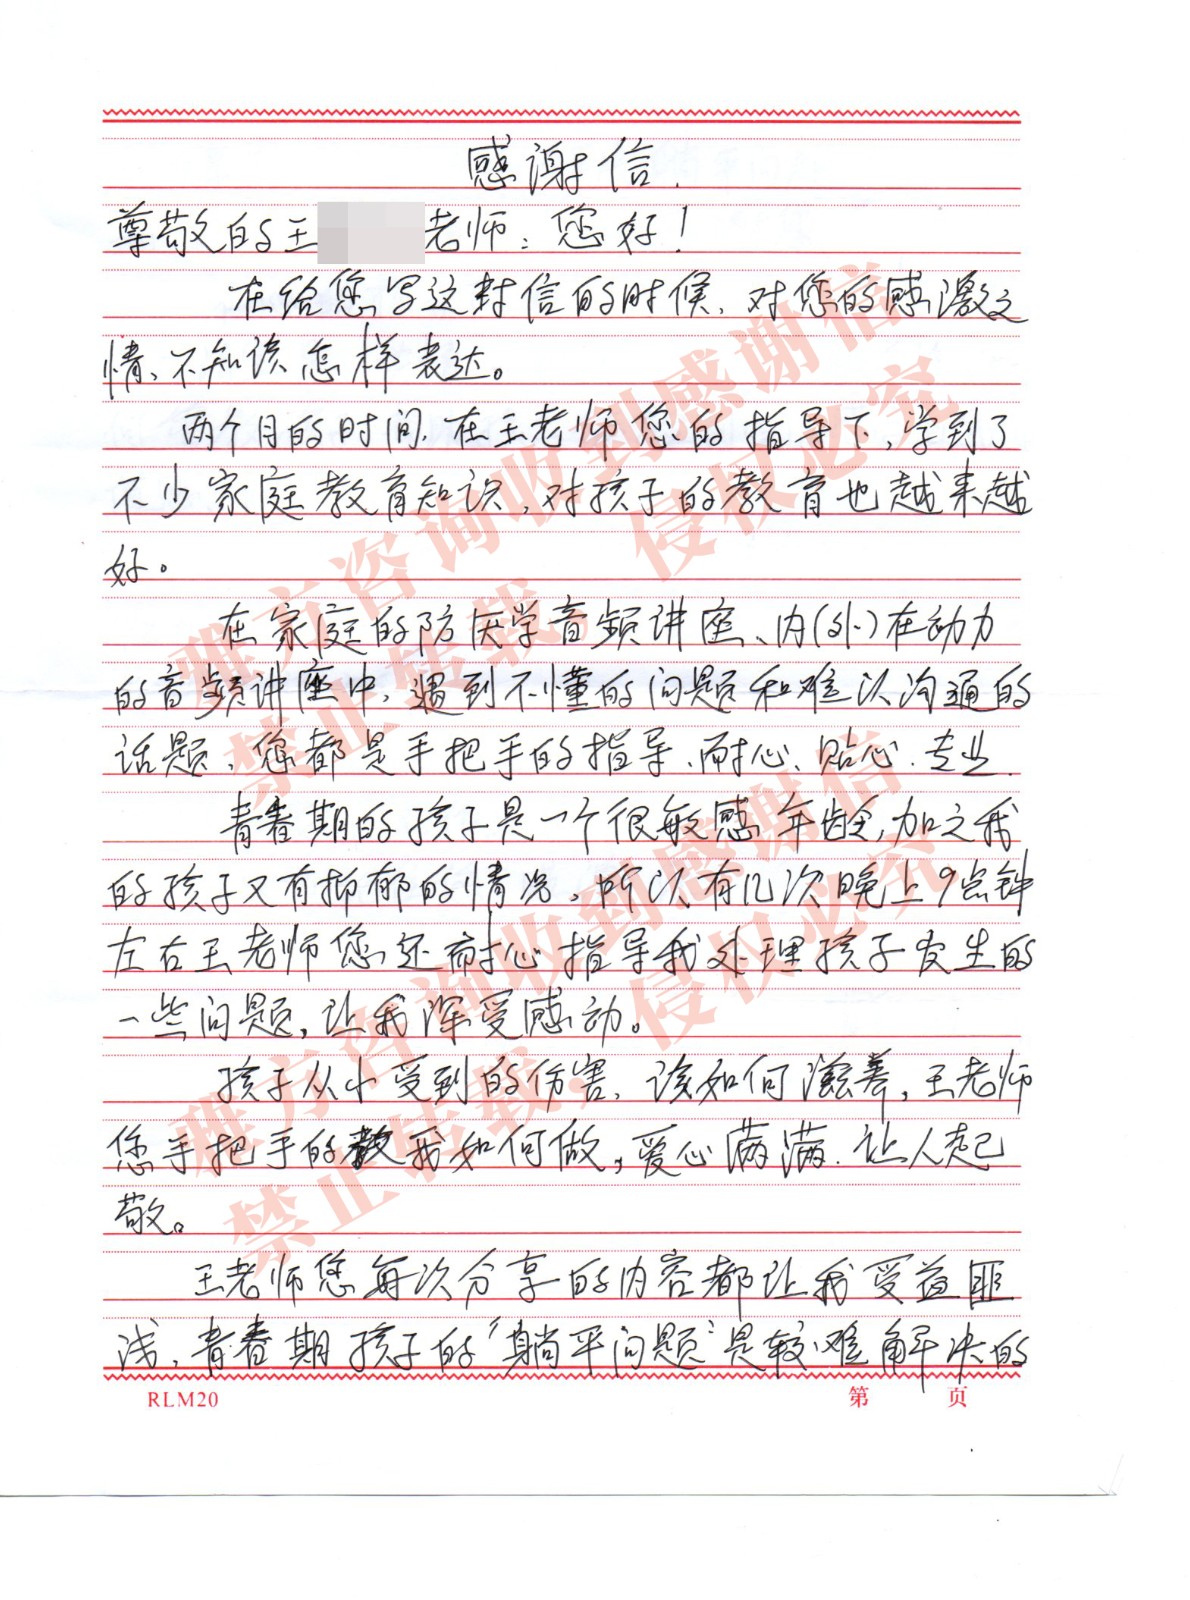 感谢信.
尊敬的王 老师：您好！
在给您写这封信的时候，对您的感激之
情、不知该怎样表达。
两个月的时间，在王老师您的指导下，学到了
不少家庭教育知识，对孩子的教育也越来越
好。
在家庭的防厌学音频讲座、内(外)在动力
的音频讲座中，遇到不懂的问题和难以沟通的
话题，您都是手把手的指导、耐心、贴心、专业.
青春期的孩子是一个很敏感年龄，加之我
的孩子又有抑郁的情况，所以有几次晚上9点钟
左右王老师您还耐心指导我处理孩子发生的
一些问题，让我深受感动。
孩子从小受到的伤害，该如何滋养，王老师
您手把手的教我如何做，爱心满满，让人起
敬。
王老师您每次分享的内容都让我受益匪
浅，青春期孩子的“躺平问题”是较难解决的
RLM20 第 页
雅方咨询收到感谢信
禁止转载，侵权必究
雅方咨询收到感谢信
禁止转载，侵权必究